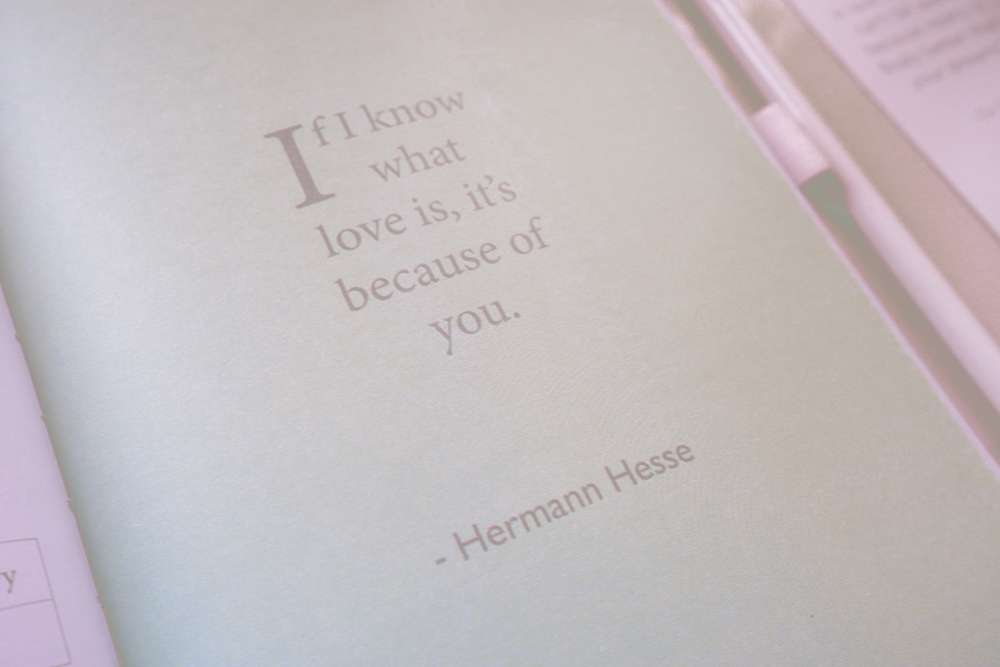 If I know
what
love is, it's
because of
you.
- Hermann Hesse
y